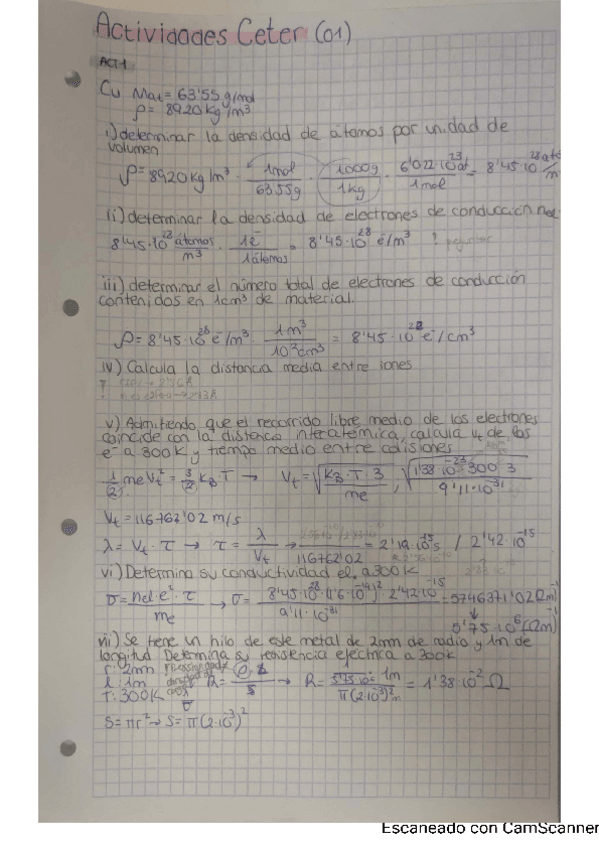 Actividades Ceter (01)
ACT1
Cu Mat = 63'55 g/mol
ρ = 8920 kg/m³
i) determinar la densidad de átomos por unidad de
volumen
ρ = 8920 kg/m³ · 1mol/63'55g · 1000g/1kg · 6'022·10²³at/1mol = 8'45·10²⁸ at/m³
ii) determinar la densidad de electrones de conducción nel
8'45·10²⁸ átomos/m³ · 1e⁻/1átomos = 8'45·10²⁸ e⁻/m³ ? preguntar
iii) determinar el número total de electrones de conducción
contenidos en 1cm³ de material.
ρ = 8'45·10²⁸ e⁻/m³ 1m³/10²cm³ = 8'45·10²² e⁻/cm³
iv) Calcula la distancia media entre iones
?
v) Admitiendo que el recorrido libre medio de los electrones
coincide con la distancia interatómica, calcula vt de los
e⁻ a 300K y tiempo medio entre colisiones
1/2 me Vt² = 3/2 KB T → Vt = √(KB·T·3/me), √(1'38·10⁻²³·300·3/9'11·10⁻³¹)
Vt = 116762'02 m/s
λ = Vt · τ → τ = λ/Vt → /116762'02 = 2'19·10⁻¹⁵s / 2'42·10⁻¹⁵
vi) Determina su conductividad el. a 300K
σ = nel·e²·τ/me → σ = 8'45·10²⁸·(1'6·10⁻¹⁹)²·2'42·10⁻¹⁵/9'11·10⁻³¹ = 5746371'02 (Ωm)⁻¹
↓
5'75·10⁶ (Ωm)⁻¹
vii) Se tiene un hilo de este metal de 2mm de radio y 1m de
longitud. Determina su resistencia eléctrica a 300K
r: 2mm
l: 1m R = /S → R = 1m/π(2·10⁻³)²m = 1'38·10⁻² Ω
T: 300K
S = πr² → S = π(2·10⁻³)²
Escaneado con CamScanner